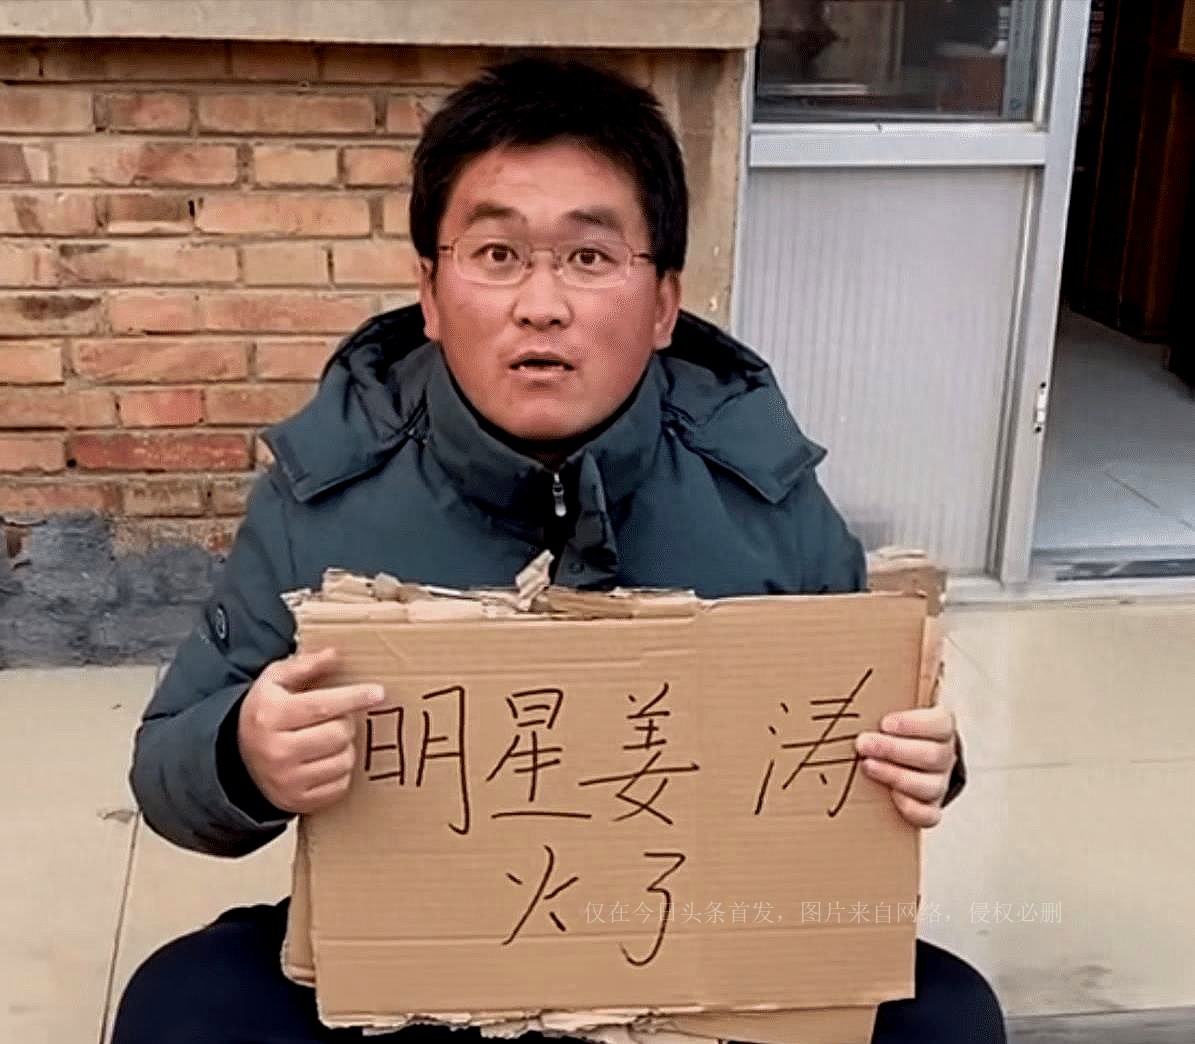 明星姜涛
火了
仅在今日头条首发，图片来自网络，侵权必删